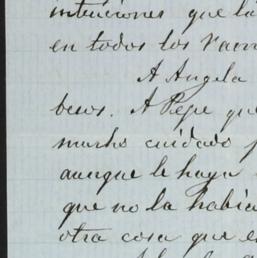 intenciones que la
en todos los ram
A Angela
besos. A Pepe que
mucho cuidado p
aunque le haya
que no la había
otra cosa que e